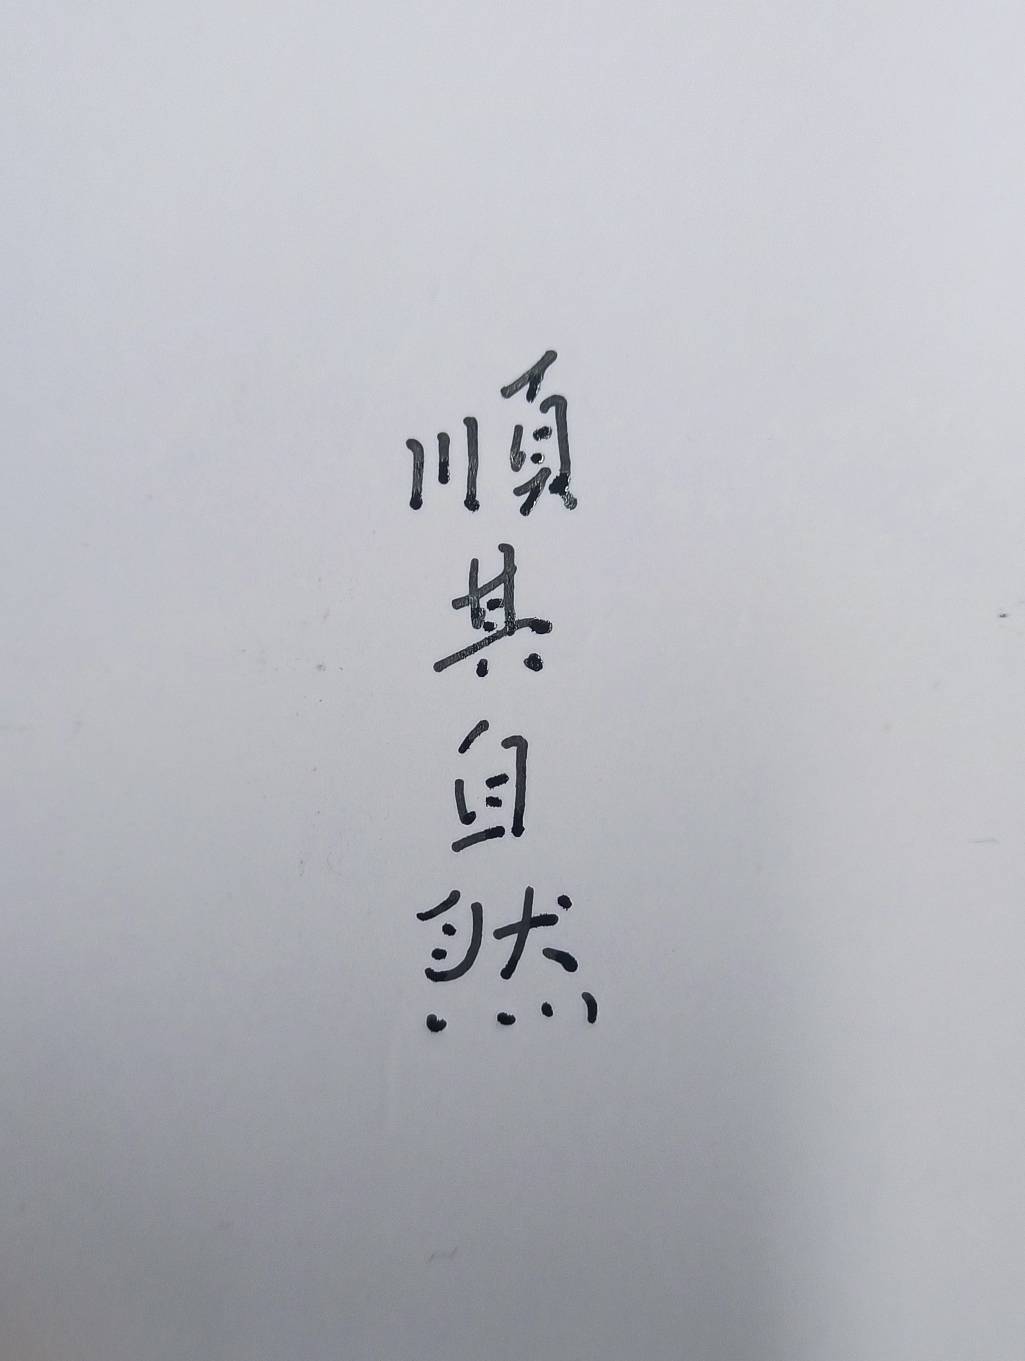 順其自然